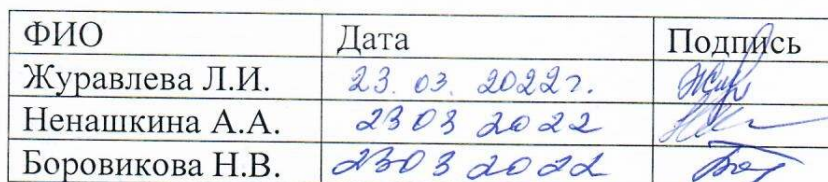 ФИО Дата Подпись
Журавлева Л.И. 23. 03. 2022г.
Ненашкина А.А. 23 03 2022
Боровикова Н.В. 23 03 2022